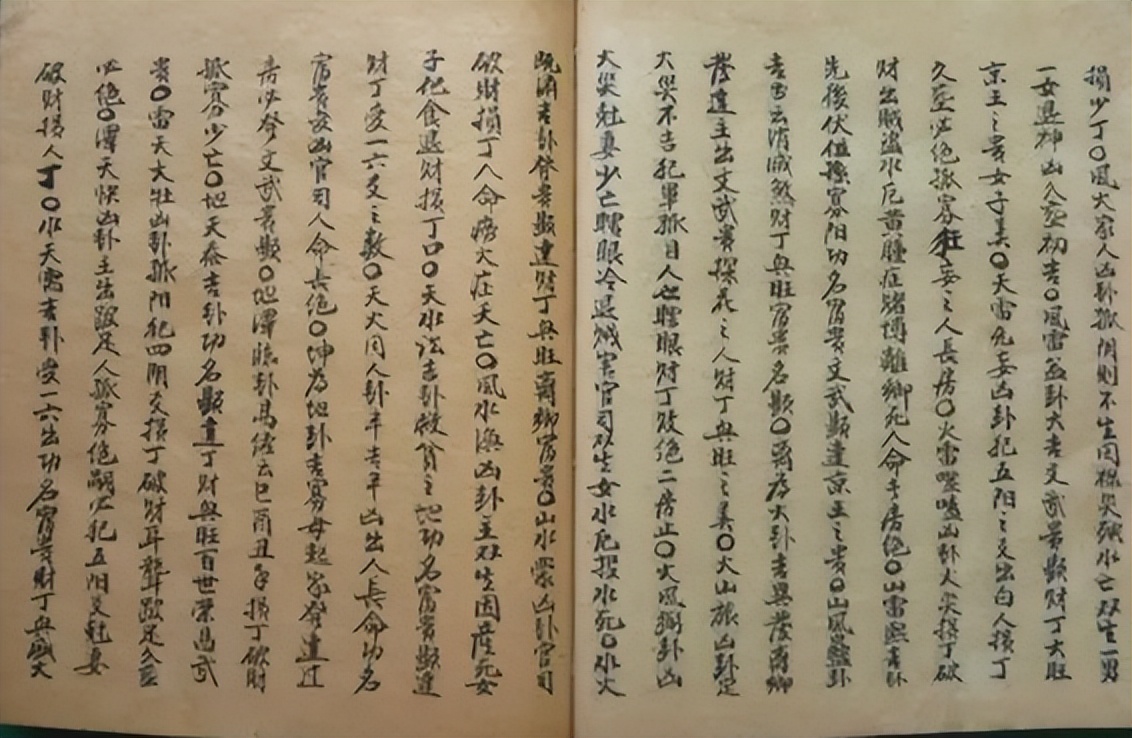 損少丁〇風火家人凶卦孤阴則不生因操災強水亡双生一男
一女退神凶久葢初吉〇風雷益卦大吉文武貴顯財丁大旺
京主之貴女子美〇天雷无妄凶卦犯五阳之爻出白人損丁
久葢必絕孤寡狂妄之人長房〇火雷噬嗑凶卦人尖損丁破
財出賊盗水厄黄腫症賭博離鄉死人命長房絕〇山雷頤吉卦
先後伏位孫寡阳功名富貴文武顯達京主之貴〇山風蠱卦
吉書云消滅煞財丁興旺富貴名顯〇离为火卦吉異發离鄉
發達主出文武貴探花之人財丁興旺之美〇火山旅凶卦足
大災不吉犯單孤目人也瞎眼財丁敗絕二房止〇火風鼎卦凶
大災尅妻少亡瞎眼冷退賊害官司双生女水厄投水死〇水火
既濟吉卦俱貴顯達財丁興旺离鄉富貴〇山水蒙凶卦官司
破財損丁人命癆火症夭亡〇風水渙凶卦主双生因產死女
子化食退財損丁口〇天水訟吉卦救貧之地功名富貴顯達
財丁爱一六爻之数〇天火同人卦半吉半凶出人長命功名
富貴女凶官司人命長絕〇坤為地卦吉寡母起家發達过
房必發文武貴顯〇地澤臨卦馬位云巳酉丑年損丁破財
孤寡少亡〇地天泰吉卦功名顯達丁財興旺百世榮昌武
貴〇雷天大壮凶卦孤阳犯四阴爻損丁破財耳聾蹺足久葢
必絕〇澤天快凶卦主出跛足人孤寡绝嗣必犯五阳爻尅妻
破財損人丁〇水天需吉卦受一六出功名富貴財丁興盛大